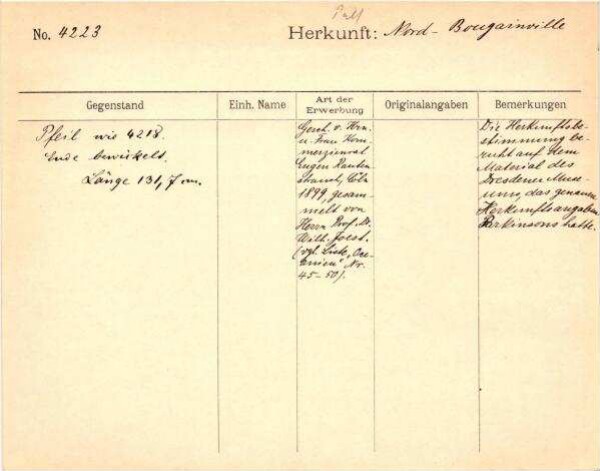 No. 4223
Herkunft: Nord-Bougainville
Gegenstand
Einh. Name
Art der
Erwerbung
Originalangaben
Bemerkungen
Pfeil wie 4218.
Ende bewickelt.
Länge 131,7 cm.
Gesch. v. Hrn.
u. Frau Kom-
merzienrat
Eugen Rauten-
strauch, Cöln
1899, gesam-
melt von
Herrn Prof. Dr.
Wilh. Joest.
(vgl. Liste „Oce-
anien" Nr.
45-50).
Die Herkunftsbe-
stimmung be-
ruht auf dem
Material des
Dresdener Muse-
ums, das genaue
Herkunftsangaben
Parkinsons hatte.